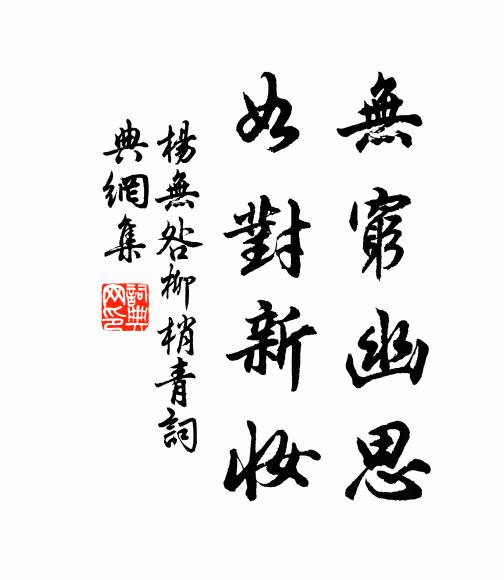 無窮幽思
如對新妝
楊無咎柳梢青詞
典網集
詞典網印